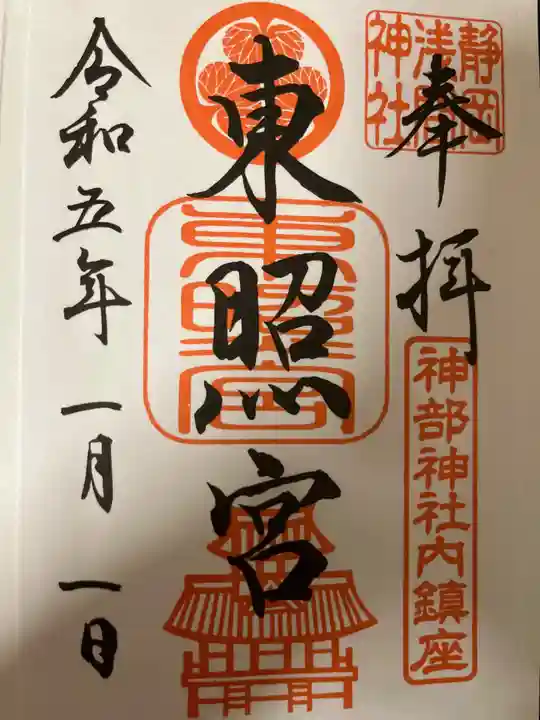 奉拝
静岡浅間神社
神部神社内鎮座
東照宮
東照宮
令和五年 一月 一日